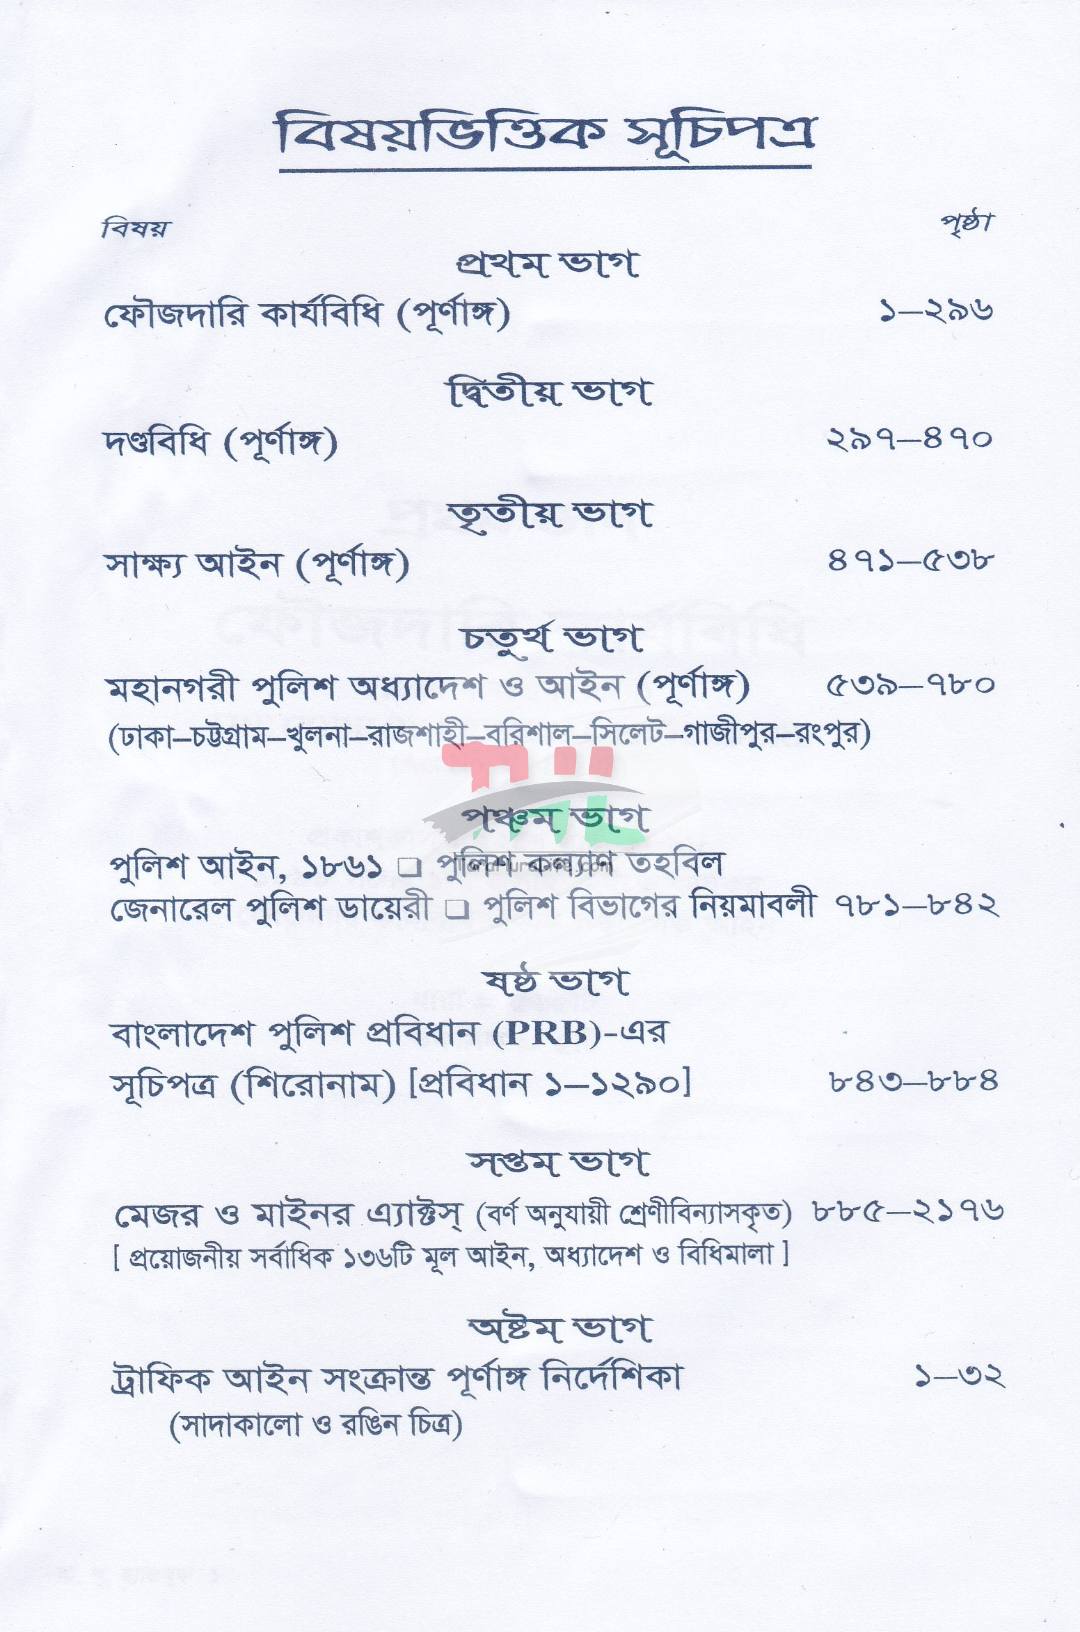 বিষয়ভিত্তিক সূচিপত্র
বিষয় পৃষ্ঠা
প্রথম ভাগ
ফৌজদারি কার্যবিধি (পূর্ণাঙ্গ) ১–২৯৬
দ্বিতীয় ভাগ
দণ্ডবিধি (পূর্ণাঙ্গ) ২৯৭–৪৭০
তৃতীয় ভাগ
সাক্ষ্য আইন (পূর্ণাঙ্গ) ৪৭১–৫৩৮
চতুর্থ ভাগ
মহানগরী পুলিশ অধ্যাদেশ ও আইন (পূর্ণাঙ্গ) ৫৩৯–৭৮০
(ঢাকা–চট্টগ্রাম–খুলনা–রাজশাহী–বরিশাল–সিলেট–গাজীপুর–রংপুর)
পঞ্চম ভাগ
পুলিশ আইন, ১৮৬১ ❑ পুলিশ কল্যাণ তহবিল
জেনারেল পুলিশ ডায়েরী ❑ পুলিশ বিভাগের নিয়মাবলী ৭৮১–৮৪২
ষষ্ঠ ভাগ
বাংলাদেশ পুলিশ প্রবিধান (PRB)-এর
সূচিপত্র (শিরোনাম) [প্রবিধান ১–১২৯০] ৮৪৩–৮৮৪
সপ্তম ভাগ
মেজর ও মাইনর এ্যাক্টস্ (বর্ণ অনুযায়ী শ্রেণীবিন্যাসকৃত) ৮৮৫–২১৭৬
[ প্রয়োজনীয় সর্বাধিক ১৩৬টি মূল আইন, অধ্যাদেশ ও বিধিমালা ]
অষ্টম ভাগ
ট্রাফিক আইন সংক্রান্ত পূর্ণাঙ্গ নির্দেশিকা ১–৩২
(সাদাকালো ও রঙিন চিত্র)